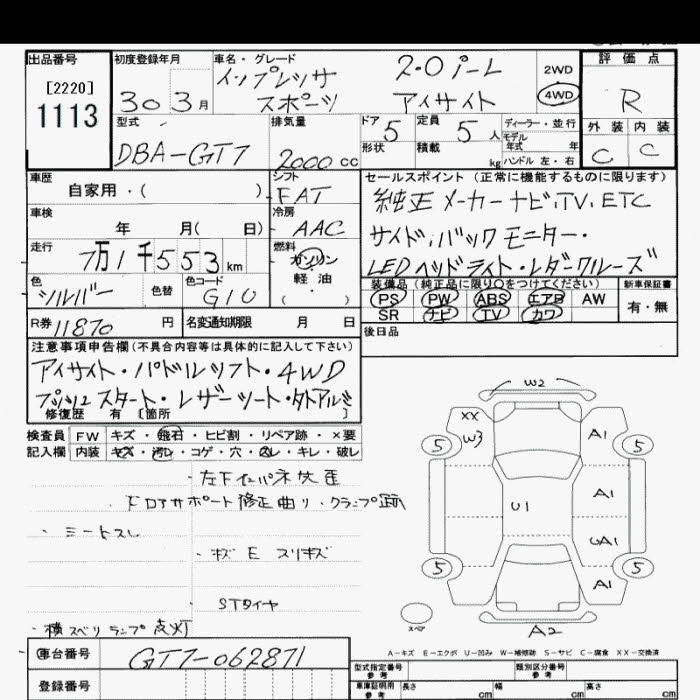 出品番号
[2220]
1113
初度登録年月
30 3月
車名・グレード
インプレッサ 2.0 i-L
スポーツ アイサイト
2WD
4WD
評価点
R
外装 内装
C C
型式
DBA-GT7
排気量
2000 cc
ドア 5
形状
定員 5人
積載 kg
ディーラー・並行
モデル年式 年
ハンドル 左・右
車歴
自家用・( )
シフト
FAT
車検
年 月( 日)
冷房
AAC
走行
7万1千553km
燃料
ガソリン
・
軽油
( ・ )
色
シルバー
色替
色コード
G10
セールスポイント (正常に機能するものに限ります)
純正メーカーナビ,TV,ETC
サイド,バックモニター・
LEDヘッドライト・レダークルーズ
装備品 (純正品に限り○をつけてください)
PS PW ABS エアB AW
SR ナビ TV カワ
新車保証書
有・無
R券 11870 円
名変通知期限 月 日
後日品
注意事項申告欄 (不具合内容等は具体的に記入して下さい)
アイサイト・パドルシフト・4WD
プッシュスタート・レザーシート・
修復歴 有 〔箇所 〕
検査員 FW キズ・飛石・ヒビ割・リペア跡・×要
記入欄 内装 キズ・汚レ・コゲ・穴・スレ・キレ・破レ
・左下インパネ
ドロアサポート修正曲り・クランプ跡
・ミートスレ
・キズ E スリキズ
STタイヤ
・横スベリランプ点灯
W2
XX
W3
A1
5
5
A1
U1
UA1
5
5
A1
スペア
A2
A-キズ E-エクボ U-凹み W-補修跡 S-サビ C-腐食 XX-交換済
車台番号
GT7-062871
登録番号
型式指定番号
参考
類別区分番号
参考
車庫証明用
参考
長さ cm
幅 cm
高さ cm